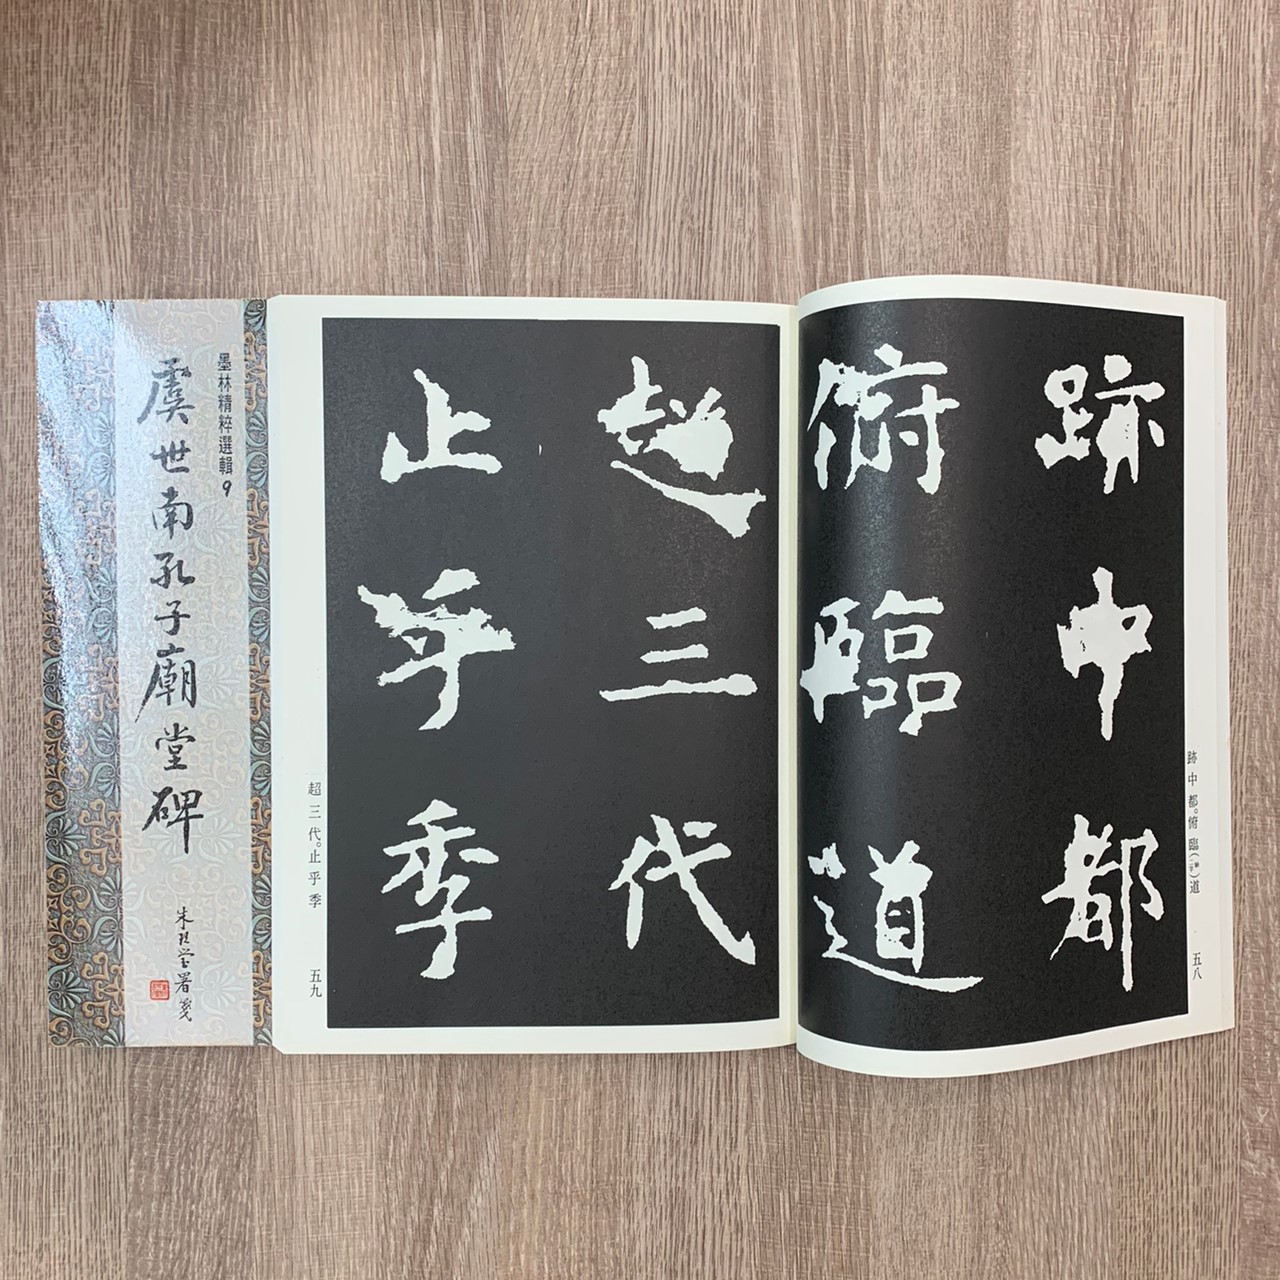 墨林精粹選輯9
虞世南孔子廟堂碑
朱玖瑩署箋
跡中都。俯臨()道
五八
跡中都
俯臨道
超三代
止乎季
超三代。止乎季
五九